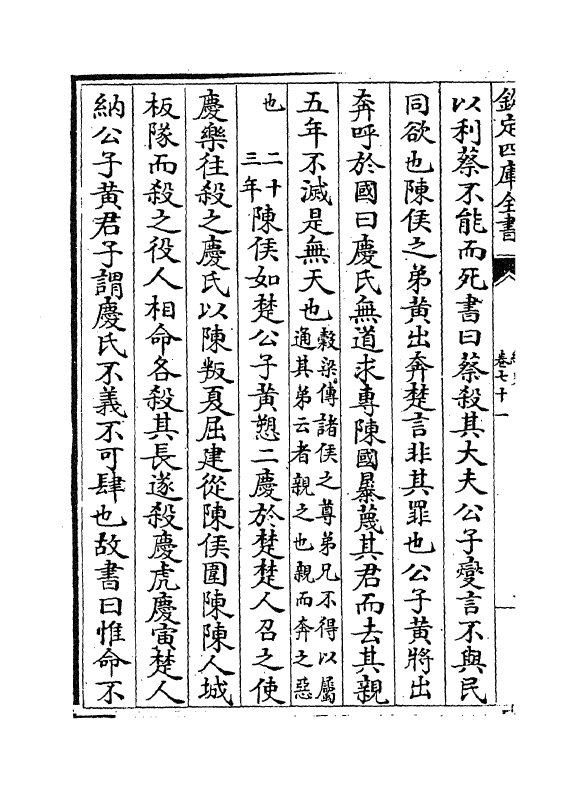 欽定四庫全書
卷七十一
以利蔡不能而死書曰蔡殺其大夫公子燮言不與民
同欲也陳侯之弟黃出奔楚言非其罪也公子黃將出
奔呼於國曰慶氏無道求專陳國暴蔑其君而去其親
五年不滅是無天也穀梁傳諸侯之尊弟兄不得以屬
通其弟云者親之也親而奔之惡
也
二十
三年陳侯如楚公子黃愬二慶於楚楚人召之使
慶樂往殺之慶氏以陳叛夏屈建從陳侯圍陳陳人城
板隊而殺之役人相命各殺其長遂殺慶虎慶寅楚人
納公子黃君子謂慶氏不義不可肆也故書曰惟命不